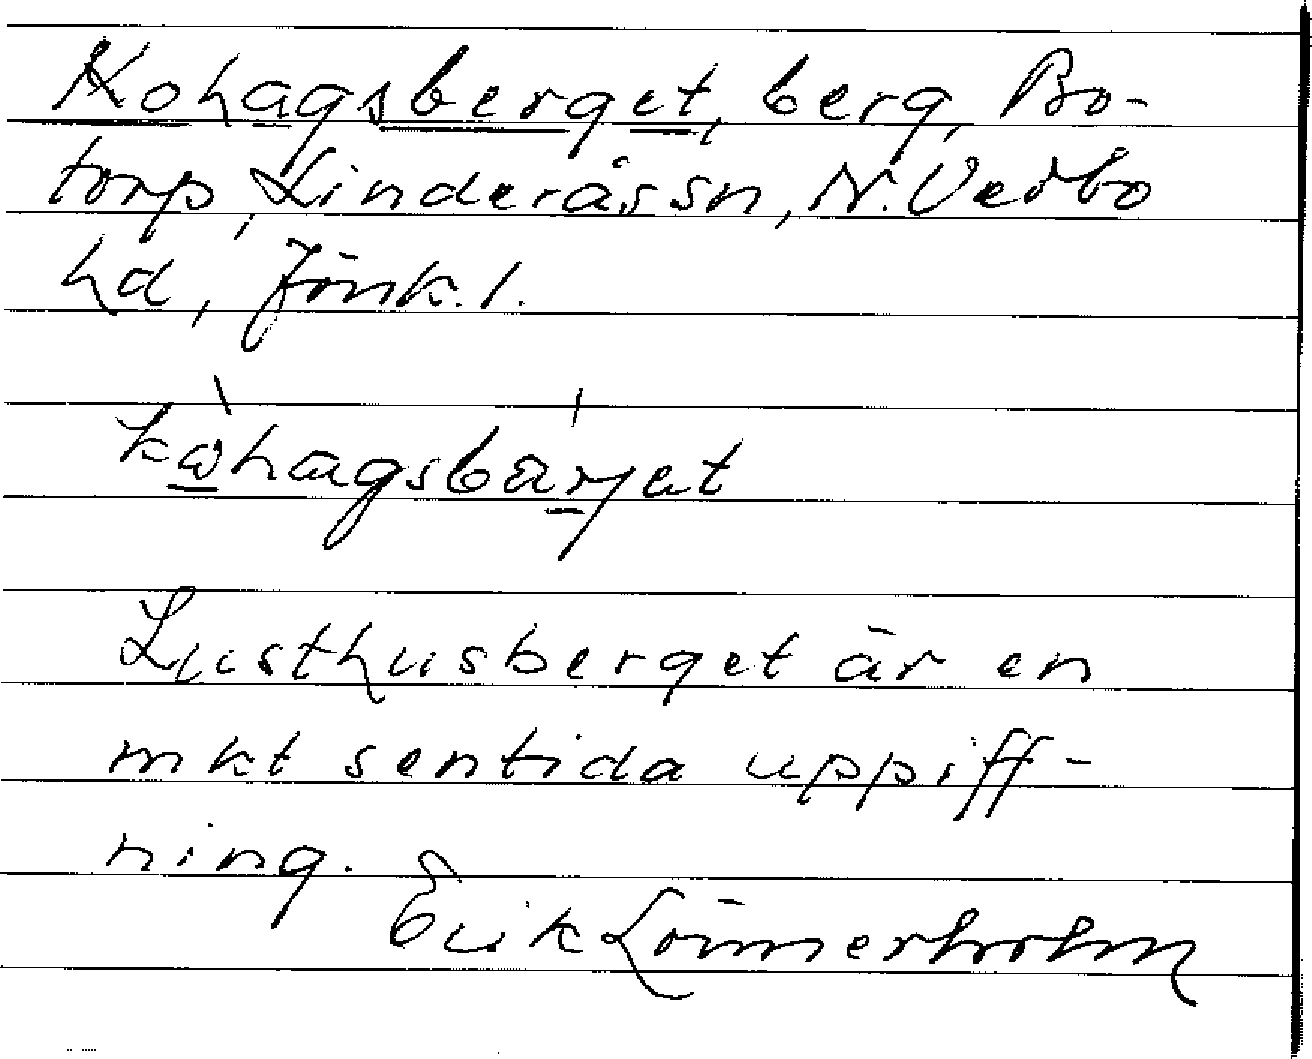 Kohagsberget, berg, Bo-
torp, Linderås sn, N. Vedbo
hd, Jönk. l.
kωhagsbärjet
Lusthusberget är en
mkt sentida uppiff-
ning.
Erik Lönnerholm